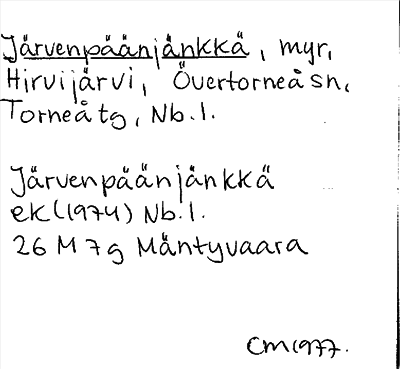 Järvenpäänjänkkä, myr,
Hirvijärvi, Övertorneå sn,
Torneå tg, Nb.l.
Järvenpäänjänkkä
ek (1974) Nb.l.
26 M 7g Mäntyvaara
CM 1977.